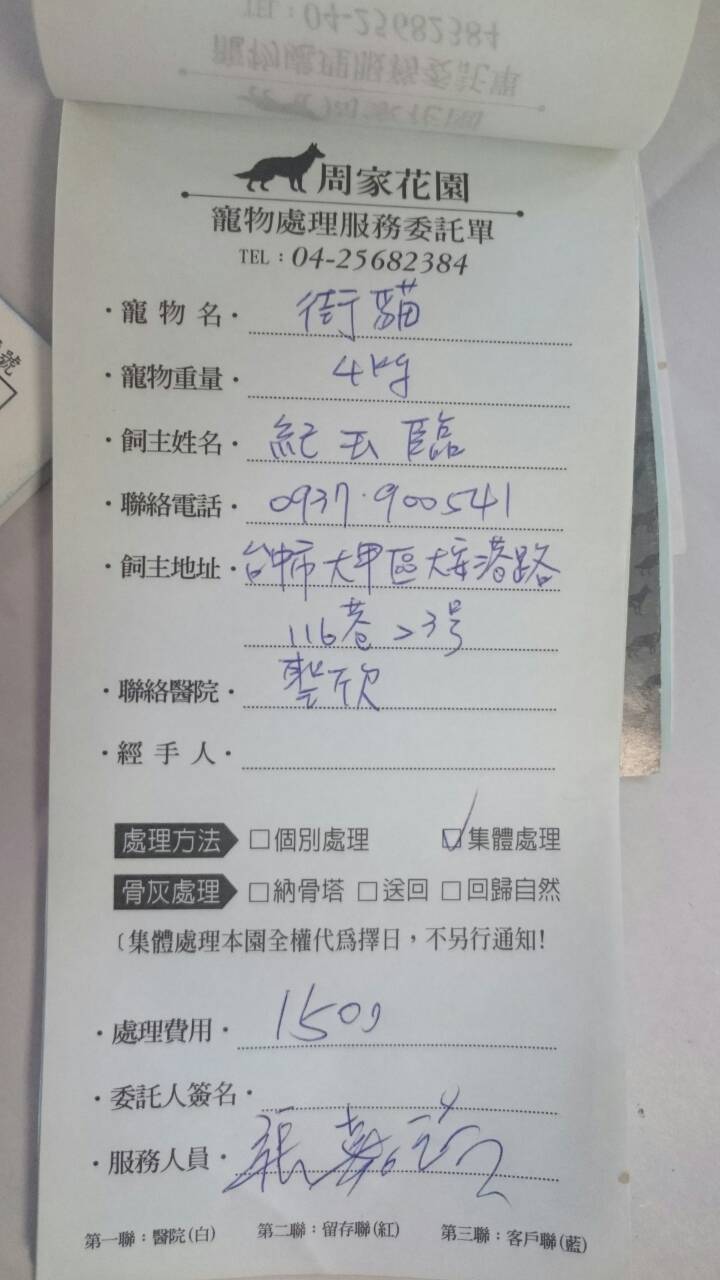 TEL：04-25682384
寵物處理服務委託單
周家花園
周家花園
寵物處理服務委託單
TEL：04-25682384
・寵物名・ 街貓
・寵物重量・ 4kg
・飼主姓名・ 紀玉臨
・聯絡電話・ 0937.900541
・飼主地址・ 台中市大甲區大安港路
116巷23号
・聯絡醫院・ 聖欣
・經手人・
處理方法 □個別處理 ☑集體處理
骨灰處理 □納骨塔 □送回 □回歸自然
(集體處理本園全權代爲擇日，不另行通知!
・處理費用・ 1500
・委託人簽名・
・服務人員・
第一聯：醫院(白) 第二聯：留存聯(紅) 第三聯：客戶聯(藍)
號